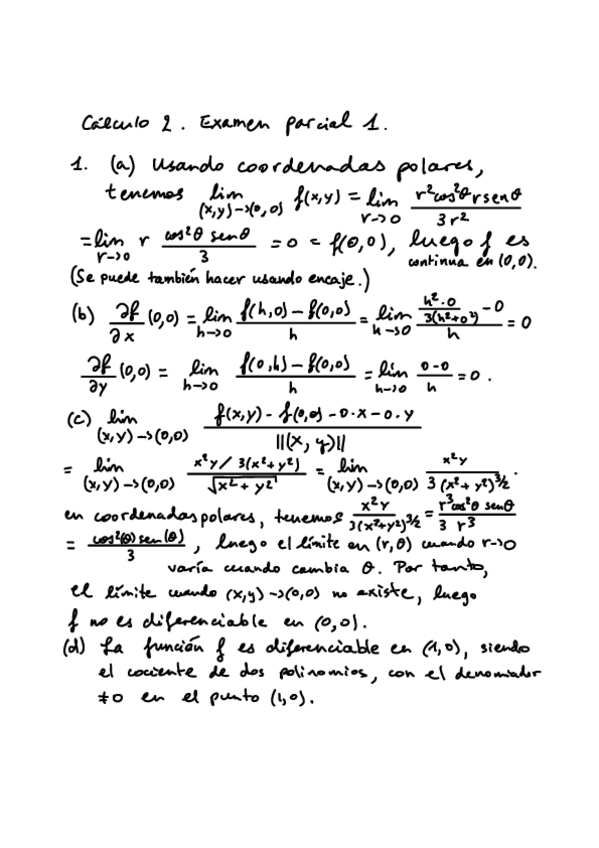 Cálculo 2. Examen parcial 1.
1. (a) Usando coordenadas polares,
tenemos lim_{(x,y)->(0,0)} f(x,y) = lim_{r->0} (r²cos²θ r senθ)/(3r²)
= lim_{r->0} r (cos²θ senθ)/3 = 0 = f(0,0), luego f es
continua en (0,0).
(Se puede también hacer usando encaje.)
(b) ∂f/∂x (0,0) = lim_{h->0} (f(h,0) - f(0,0))/h = lim_{h->0} ((h²·0)/(3(h²+0²)) - 0)/h = 0
∂f/∂y (0,0) = lim_{h->0} (f(0,h) - f(0,0))/h = lim_{h->0} (0-0)/h = 0.
(c) lim_{(x,y)->(0,0)} (f(x,y) - f(0,0) - 0·x - 0·y)/||(x,y)||
= lim_{(x,y)->(0,0)} (x²y/3(x²+y²))/√(x²+y²) = lim_{(x,y)->(0,0)} x²y/(3(x²+y²)^{3/2}).
en coordenadas polares, tenemos x²y/(3(x²+y²)^{3/2}) = (r³cos²θ senθ)/(3 r³)
= (cos²(θ) sen(θ))/3, luego el límite en (r,θ) cuando r->0
varía cuando cambia θ. Por tanto,
el límite cuando (x,y)->(0,0) no existe, luego
f no es diferenciable en (0,0).
(d) La función f es diferenciable en (1,0), siendo
el cociente de dos polinomios, con el denomiador
≠0 en el punto (1,0).